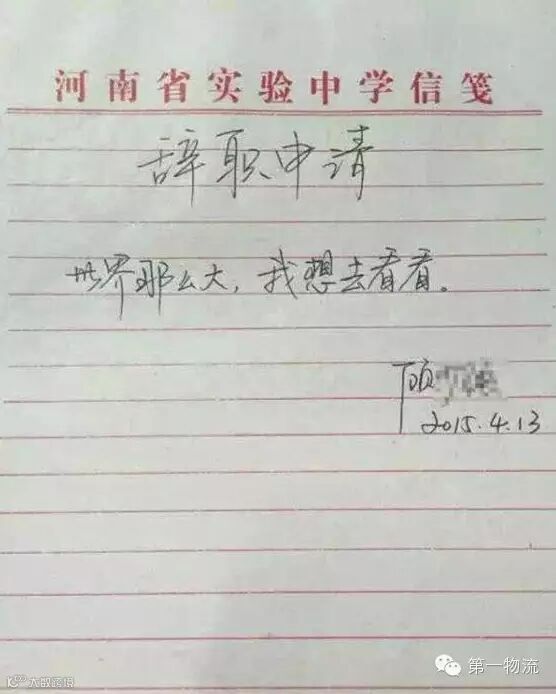 河南省实验中学信笺
辞职申请
世界那么大，我想去看看。
顾
2015.4.13
第一物流
大数跨境